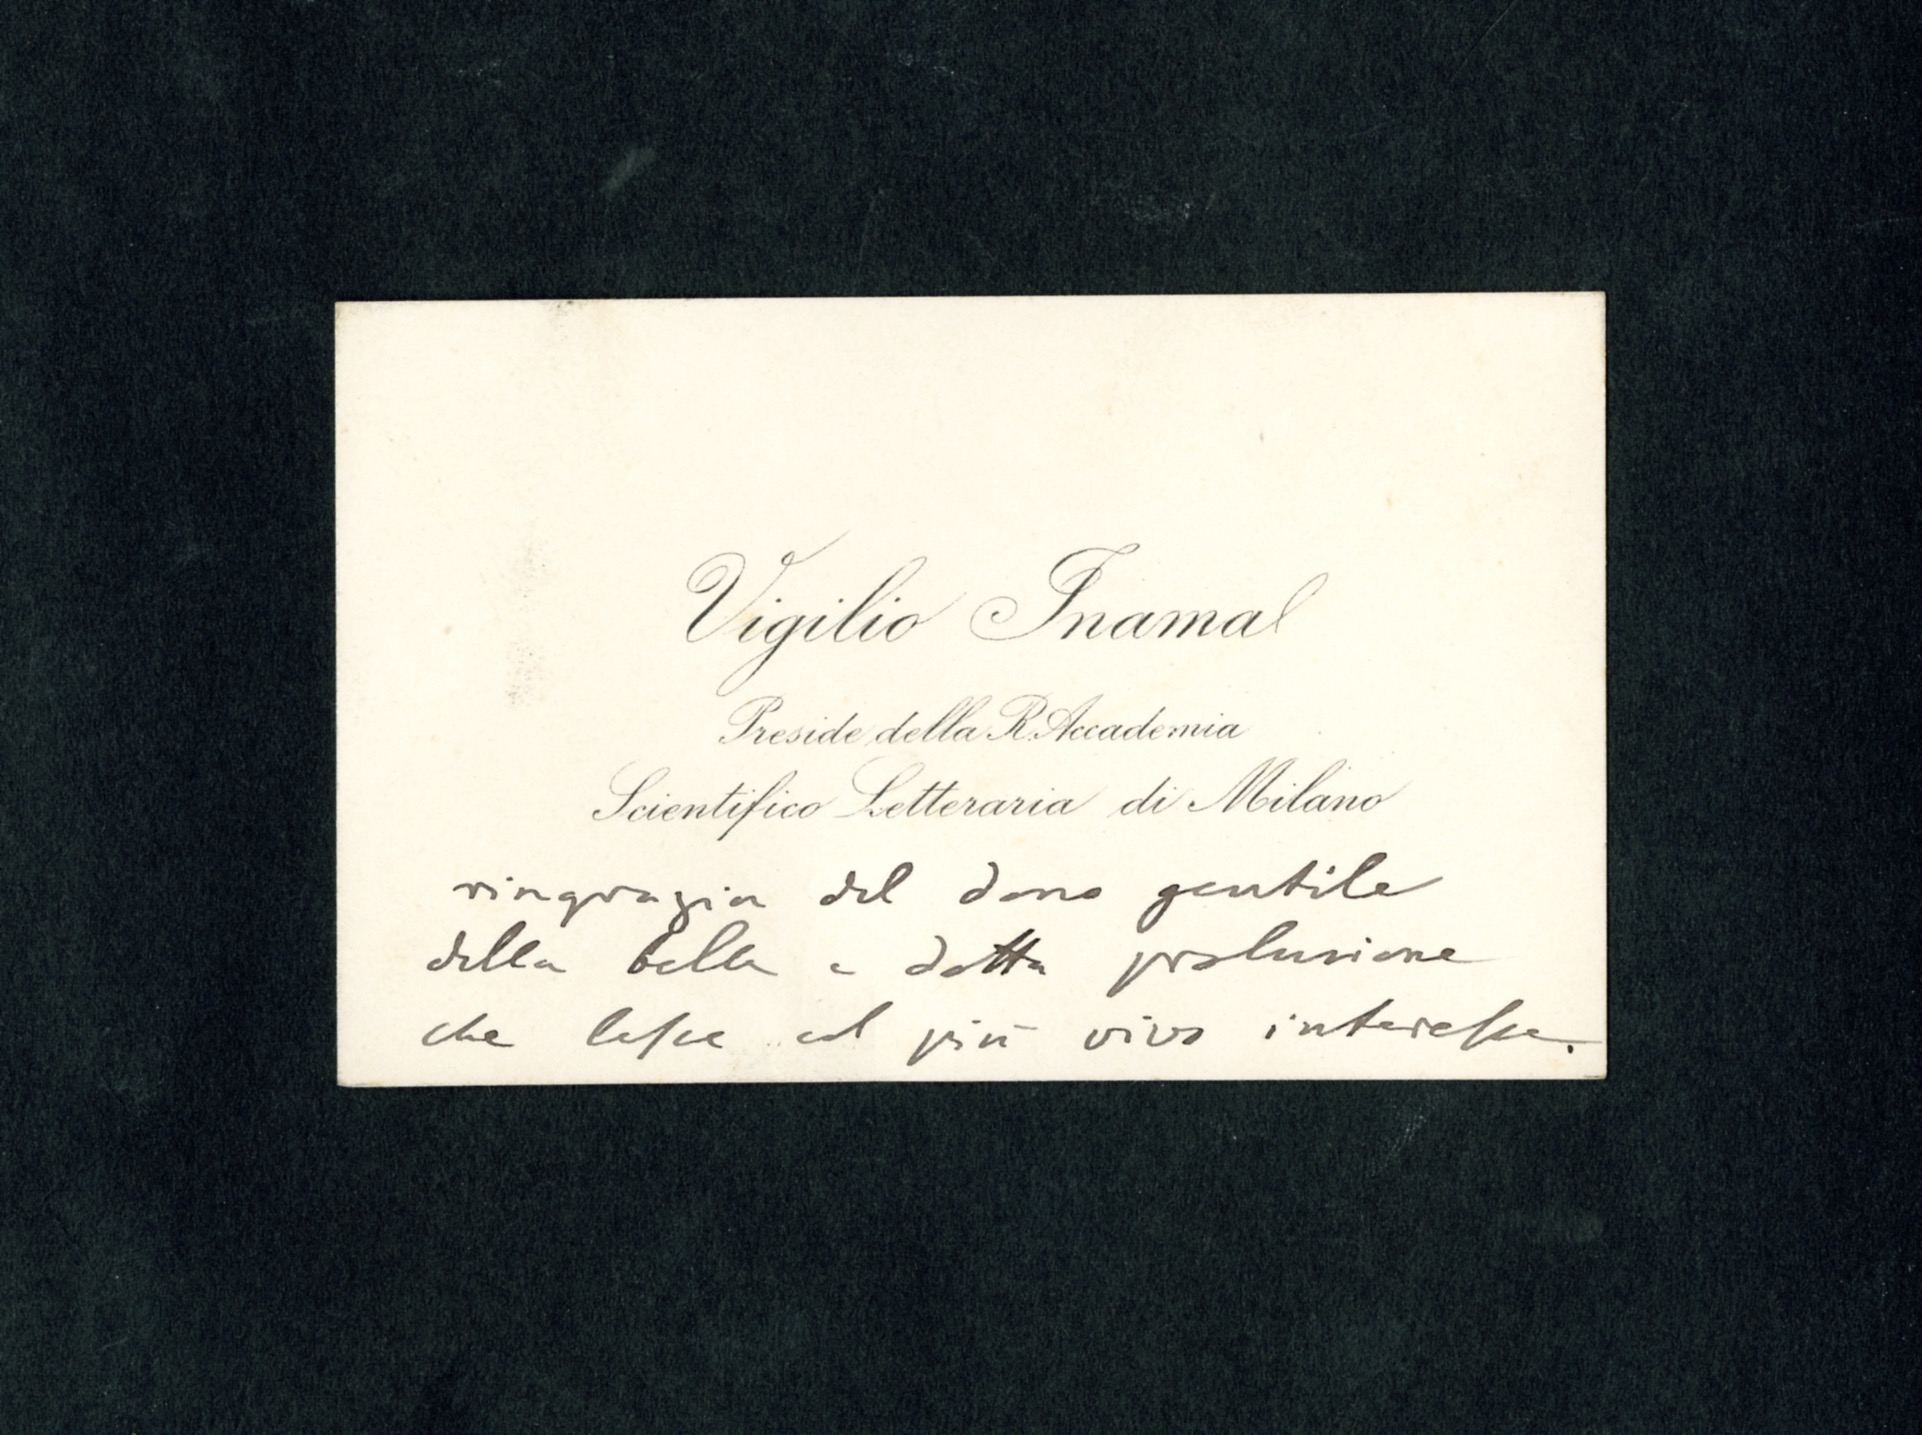 Vigilio Inama
Preside della R. Accademia
Scientifico Letteraria di Milano
ringrazia del dono gentile
della bella e dotta prolusione
che lesse col più vivo interesse.